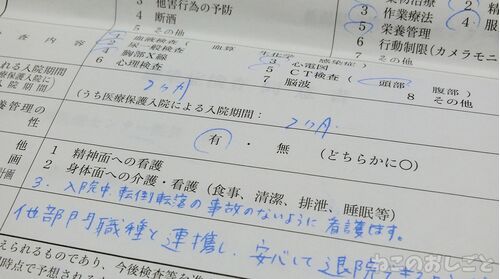 3 他害行為の予防
4 断酒
5 その他
薬物治療
2
3 作業療法
4 服
5 栄養管理
6 行動制限(カメラモニ
7 その他
査内容
1 血液検査(血算 生化学 感染症)
2 尿一般検査 3 心電図
4 胸部X線 5 CT検査(頭部 腹部)
6 心理検査 7 脳波 8 その他
される入院期間 2ヶ月
医療保護に
入院期間)
(うち医療保護入院による入院期間: 2ヶ月.
養管理の
性
有・無(どちらかに〇)
他
画
計画
1 精神面への看護
2 身体面への介護・看護(食事、清潔、排泄、睡眠等)
3. 入院中 転倒転落の事故のないように看護します。
他部門職種と連携し、安心して退院
えられるものであり、今後検査等を進
時点で予想される
ねこのおしごと